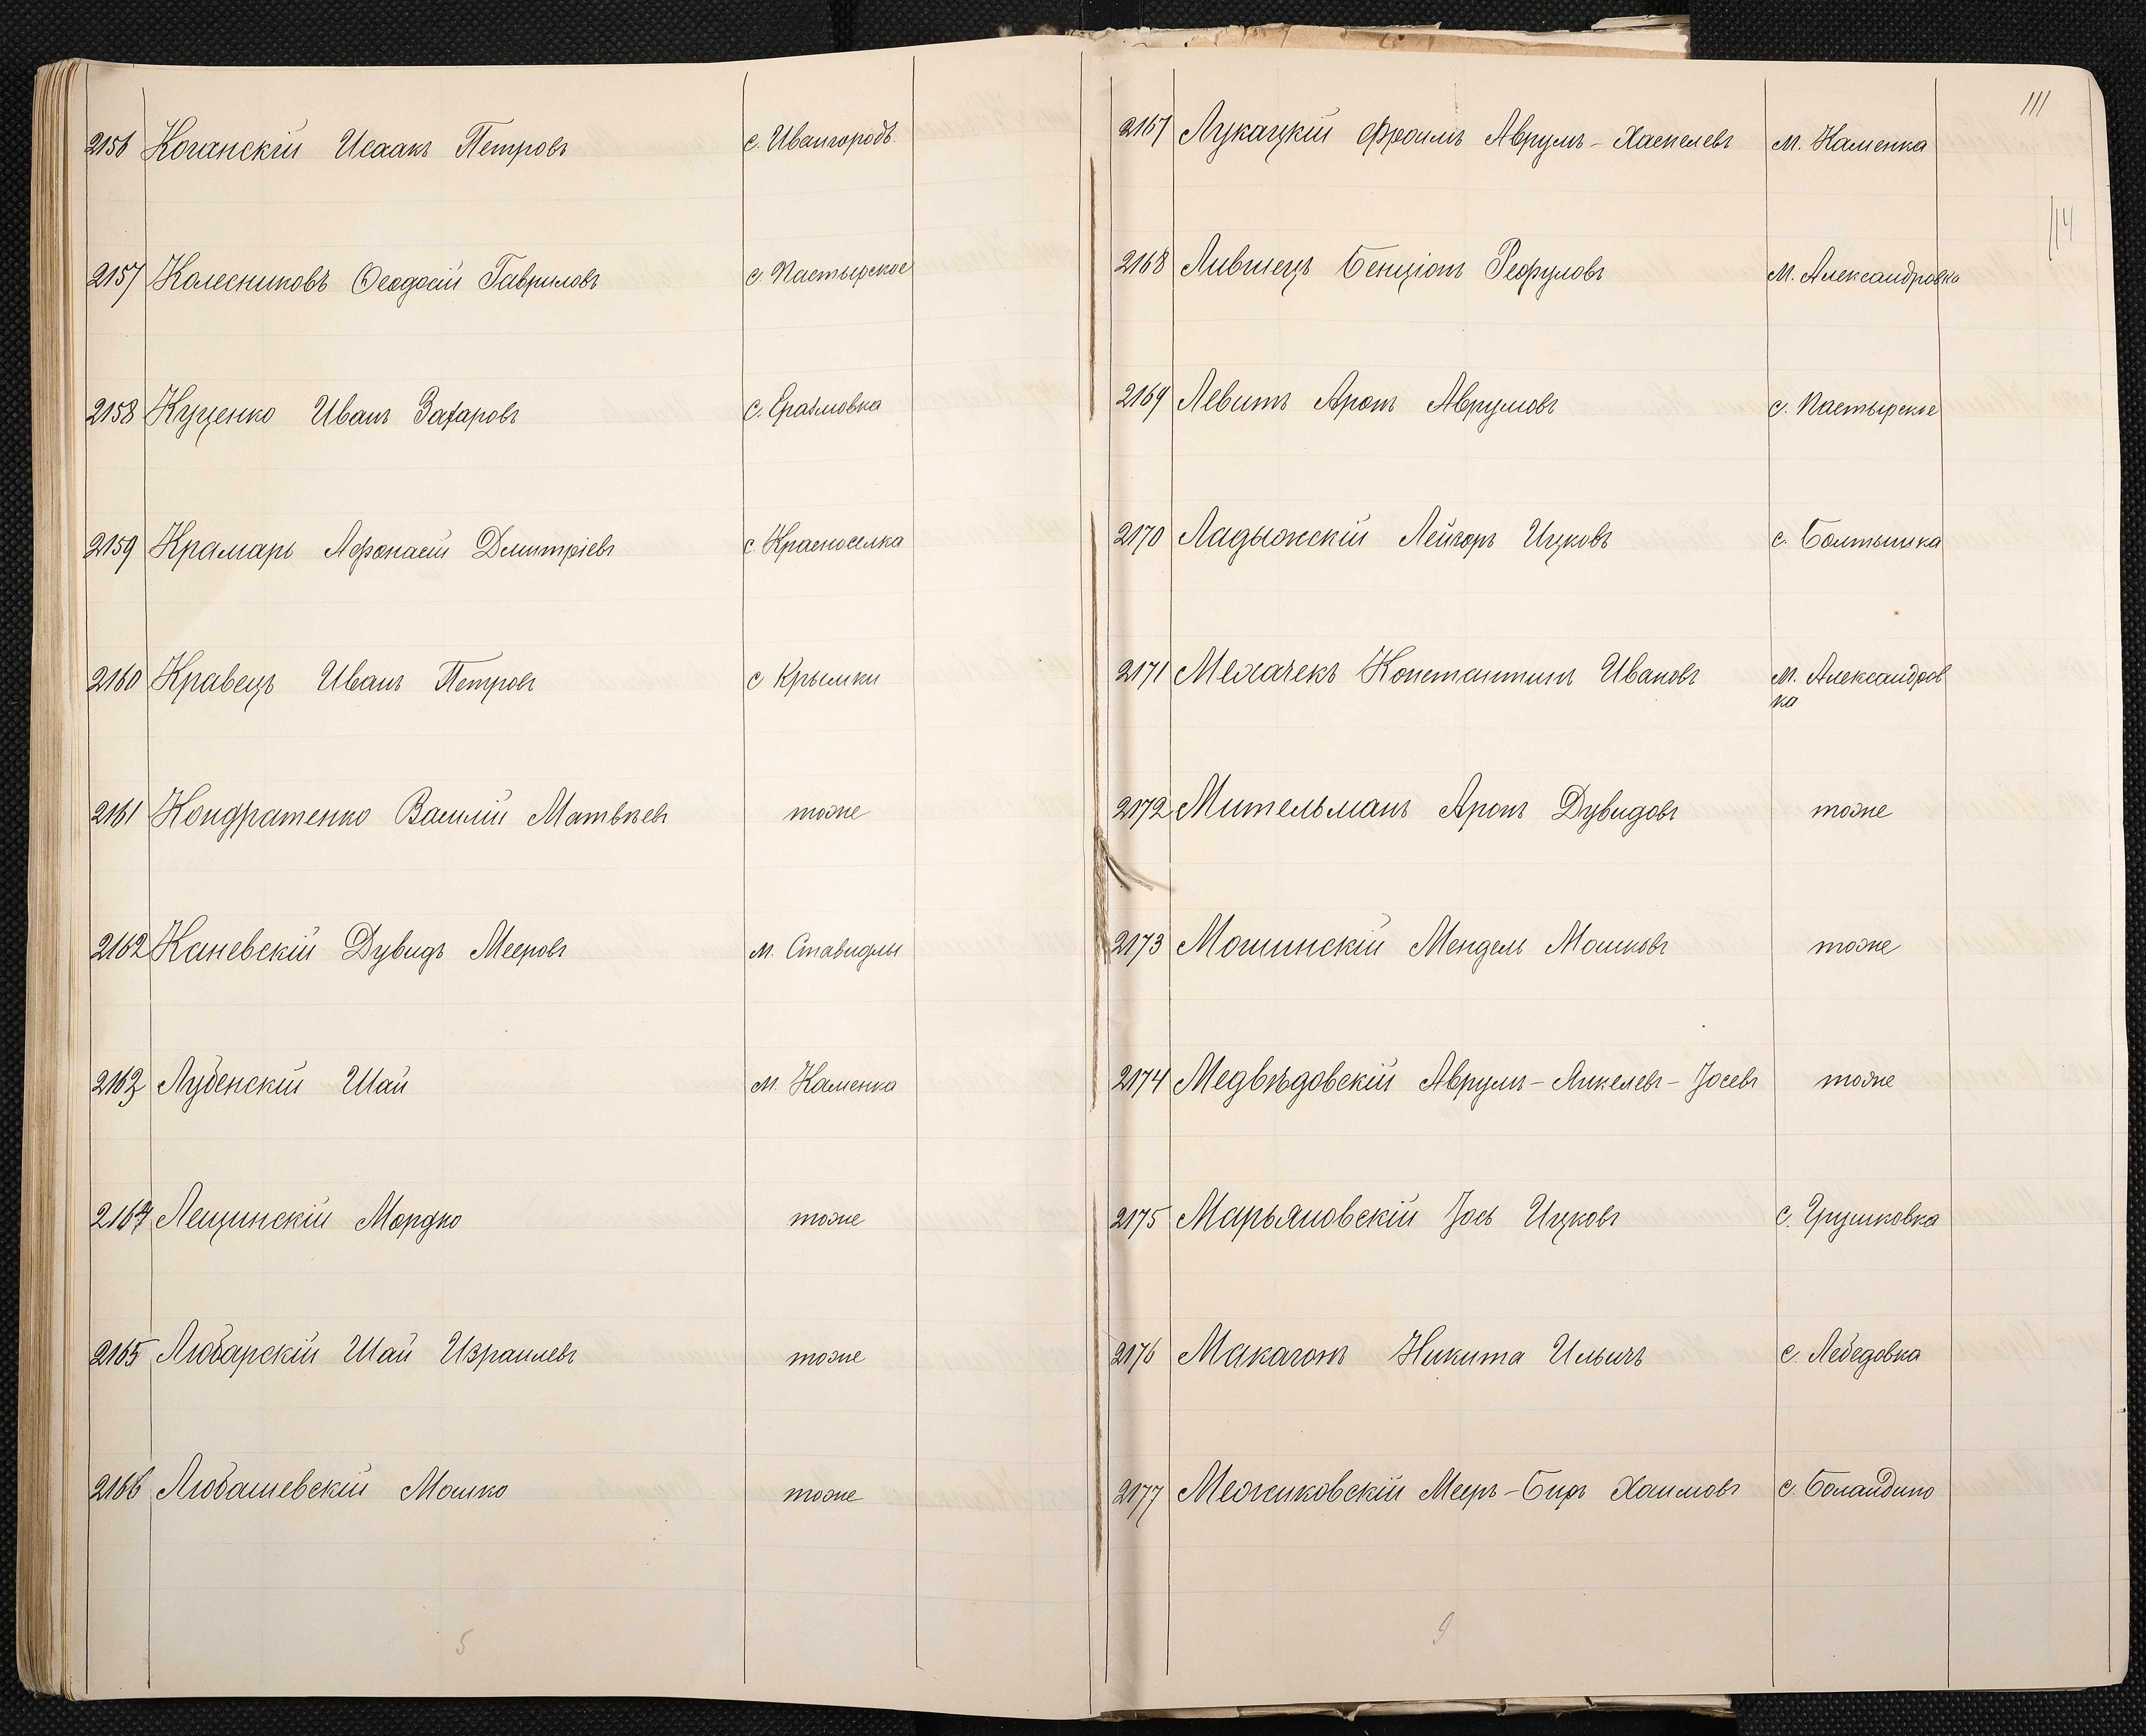 2156 Коганскій Исаакъ Петровъ с. Ивангородъ
2157 Колесниковъ Ѳеодосій Гавриловъ с. Пастырское
2158 Куценко Иванъ Захаровъ с.
2159 Крамарь Афонасій Дмитріевъ с. Красноселка
2160 Кравецъ Иванъ Петровъ с Крымки
2161 Кондратенко Василій Матвѣевъ тоже
2162 Каневскій Дувидъ Мееровъ м. Ставидлы
2163 Лубенскій Шай м. Каменка
2164 Лещинскій Мордко тоже
2165 Любарскій Шай Израилевъ тоже
2166 Любашевскій Мошко тоже
5
111
114
2167 Лукацкій Фроимъ Аврумъ-Хаскелевъ м. Каменка
2168 Лившецъ Бенціонъ Рефуловъ м. Александровка
2169 Левитъ Аронъ Аврумовъ с. Пастырское
2170 Ладыжскій Лейзоръ Ицковъ с. Болтышка
2171 Мехачекъ Константинъ Ивановъ м. Александров
ка
2172 Мительманъ Аронъ Дувидовъ тоже
2173 Мошинскій Мендель Мошковъ тоже
2174 Медвѣдовскій Аврумъ-Янкелевъ-Іосевъ тоже
2175 Марьяновскій Іось Ицковъ с. Грушковка
2176 Макагонъ Никита Ильичъ с. Лебедовка
2177 Межиковскій Мееръ-Беръ Хаимовъ с. Баландино
9